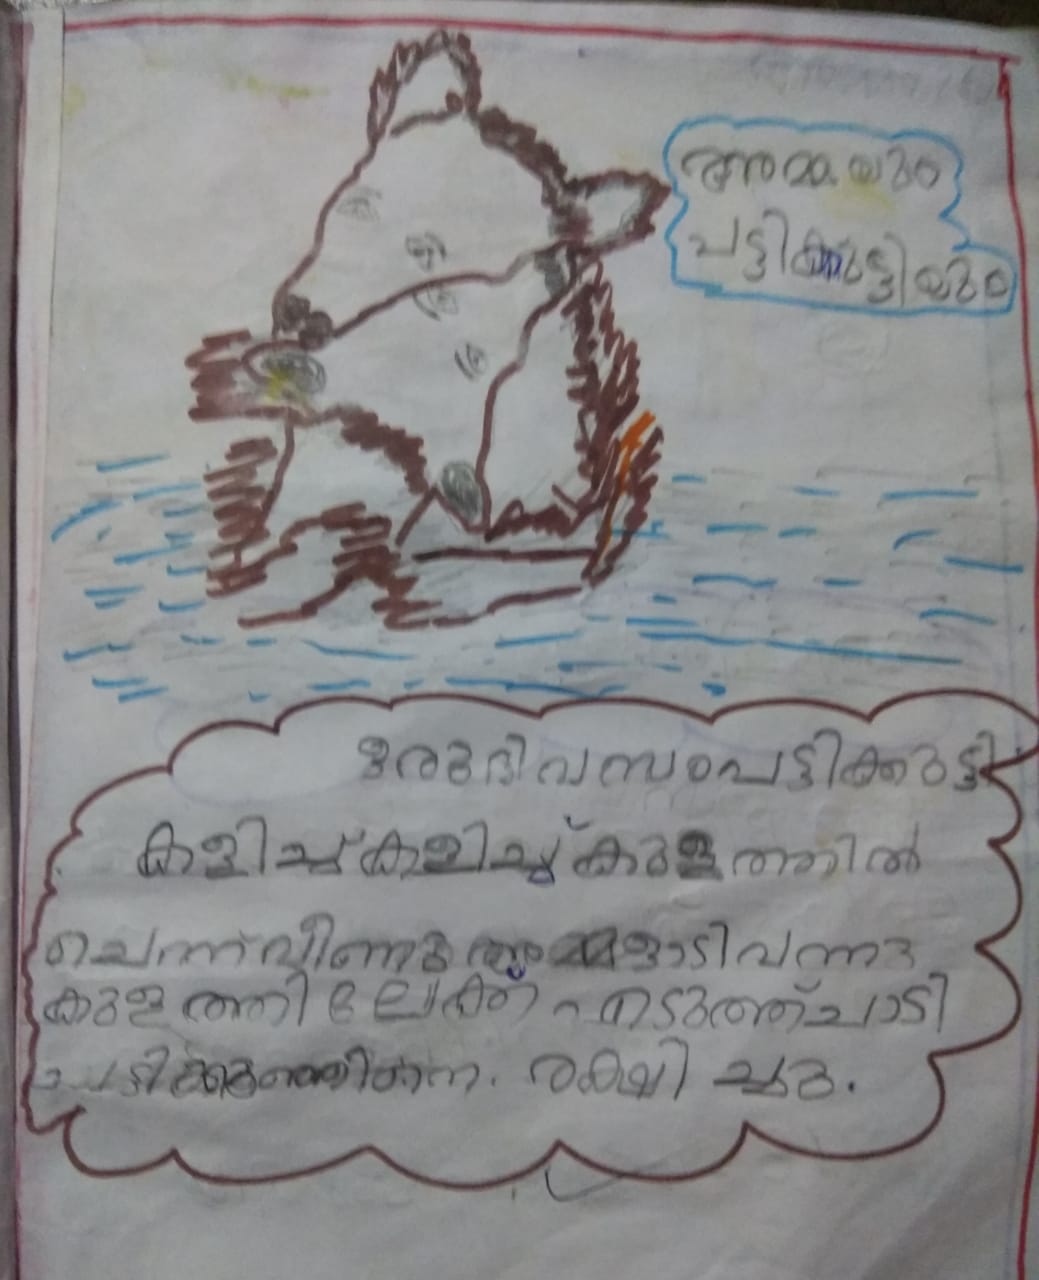 അമ്മയും
പട്ടിക്കുട്ടിയും
ഒരു ദിവസം പട്ടിക്കുട്ടി
കളിച്ച് കളിച്ച് കുളത്തിൽ
ചെന്ന് വീണു അമ്മ ഓടി വന്നു
കുളത്തിലേക്ക് എടുത്ത് ചാടി
രക്ഷിച്ചു.